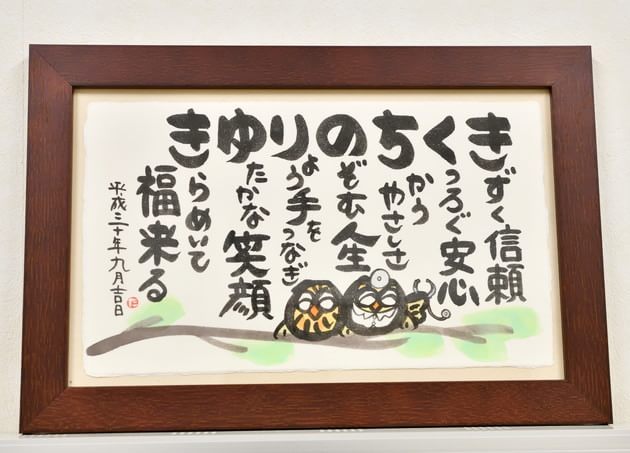 きずく信頼
くつろぐ安心
ちかうやさしさ
のぞむ人生
りょう手をつなぎ
ゆたかな笑顔
きらめいて
福来る
平成三十年九月吉日